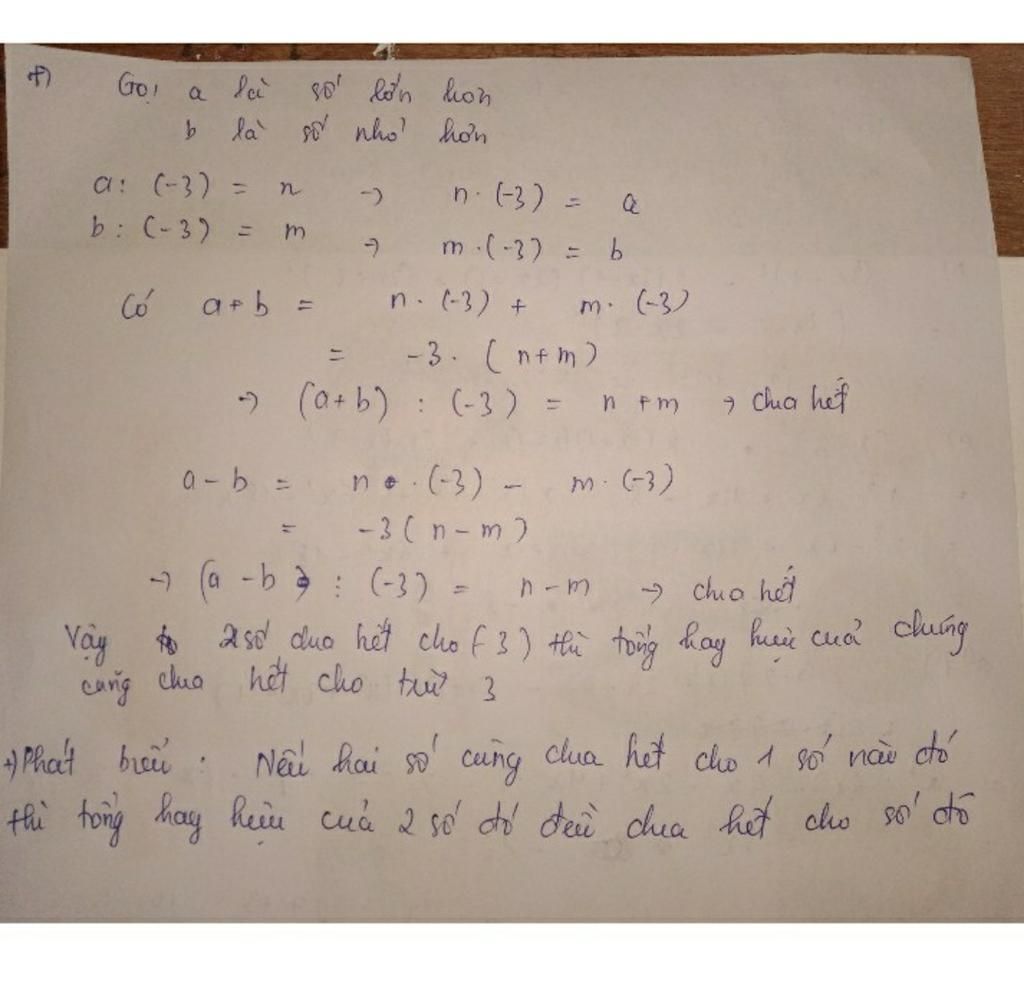 +) Gọi a là số lớn hơn
b là số nhỏ hơn
a : (-3) = n → n . (-3) = a
b : (-3) = m → m . (-3) = b
Có a + b = n . (-3) + m . (-3)
= -3 . ( n + m )
→ (a + b) : (-3) = n + m → chia hết
a - b = n . (-3) - m . (-3)
= -3 ( n - m )
→ (a - b) : (-3) = n - m → chia hết
Vậy 2 số chia hết cho (-3) thì tổng hay hiệu của chúng
cũng chia hết cho trừ 3
+) Phát biểu : Nếu hai số cùng chia hết cho 1 số nào đó
thì tổng hay hiệu của 2 số đó đều chia hết cho số đó